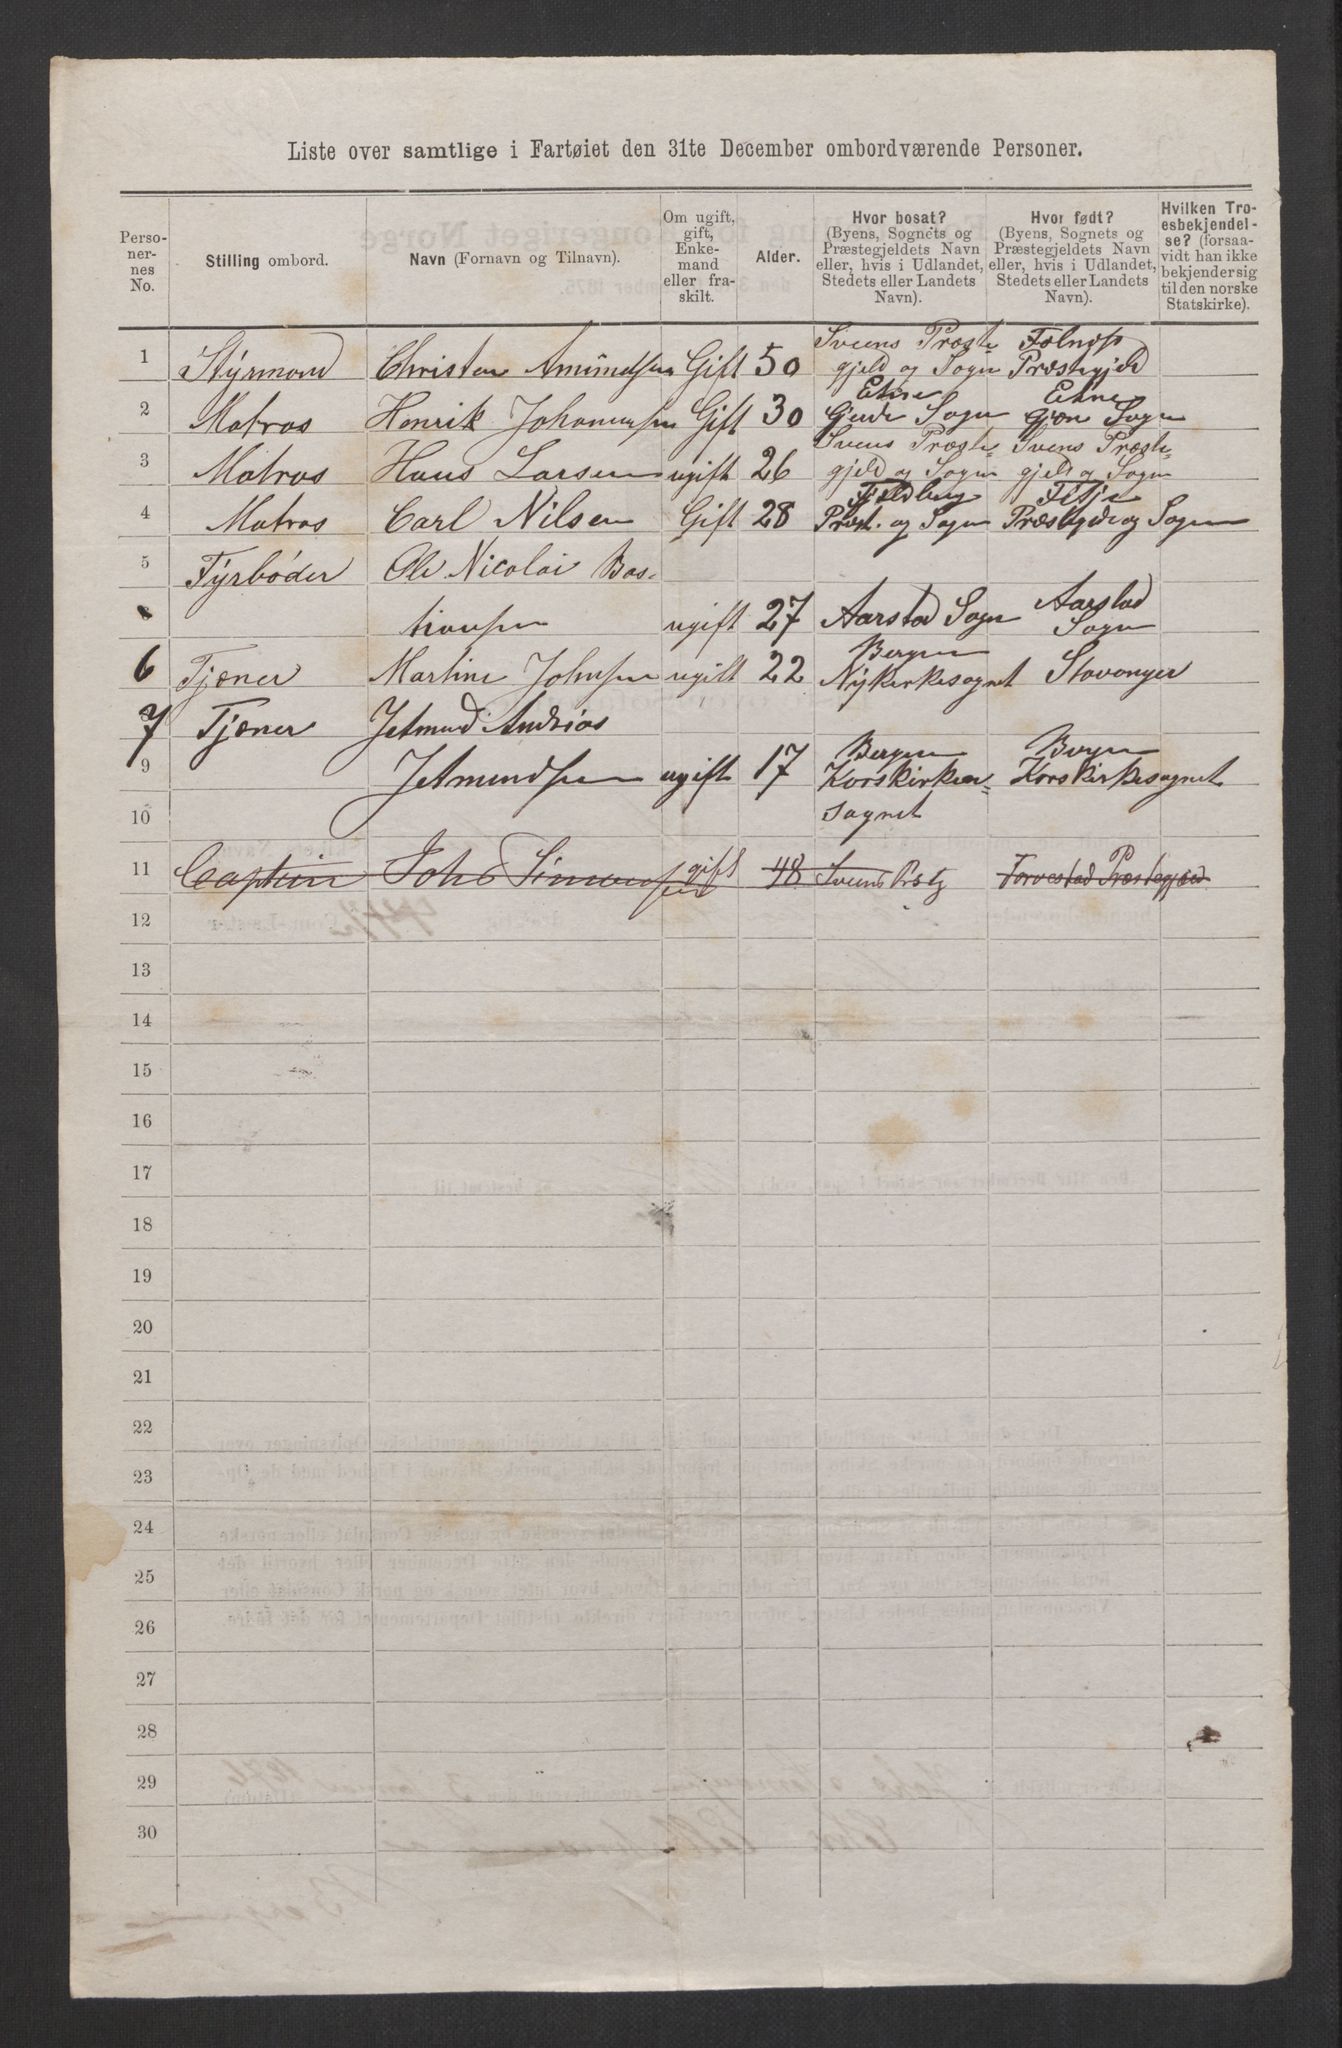 Liste over samtlige i Fartøiet den 31te December ombordværende Personer.
Perso-
ner-
nes
No.
Stilling ombord.
Navn (Fornavn og Tilnavn).
Om ugift,
gift,
Enke-
mand
eller fra-
skilt.
Alder.
Hvor bosat?
(Byens, Sognets og
Præstegjeldets Navn
eller, hvis i Udlandet,
Stedets eller Landets
Navn).
Hvor født?
(Byens, Sognets og
Præstegjeldets Navn
eller, hvis i Udlandet,
Stedets eller Landets
Navn).
Hvilken Tro-
esbekjendel-
se? (forsaa-
vidt han ikke
bekjender sig
til den norske
Statskirke).
Sveens Præste- Folnøss
1 Styrmand Christen Amundsen Gift 50 gjeld og Sogn Præstegjeld
Etne Etne
2 Matros Henrik Johannesen Gift 30 Gjerde Sogn Sogn
Svens Præste- Svens Præste-
3 Matros Hans Larsen ugift 26 gjeld og Sogn gjeld og Sogn
Fjeldberg Fitje
4 Matros Carl Nilsen Gift 28 Præst. og Sogn Præstegjeld og Sogn
5 Fyrbøder Ole Nicolai Bas-
tiansen ugift 27 Aarstad Sogn Aarstad
Sogn
Bergen
6 Tjener Martine Johnsen ugift 22 Nykirkesognet Stavanger
7 Tjener Jetmund Andrias
Bergen Bergen
9 Jetmundsen ugift 17 Korskirke- Korskirkesognet
10 sognet
11 Captein John Simonsen gift 48 Sveens Præstg Torvestad Præstegjeld
12
13
14
15
16
17
18
19
20
21
22
23
24
25
26
27
28
29
30